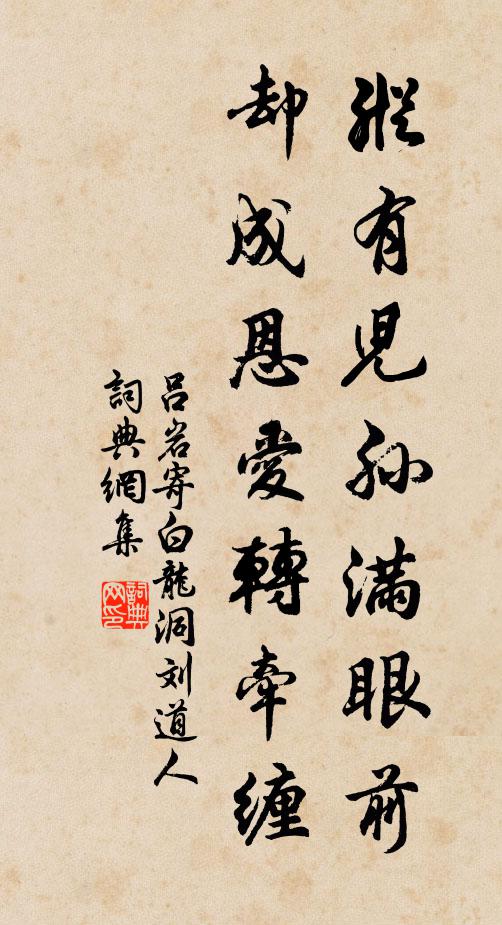 縱有兒孫滿眼前
却成恩愛轉牽纏
呂岩寄白龍洞刘道人
詞典網集
詞典
网印